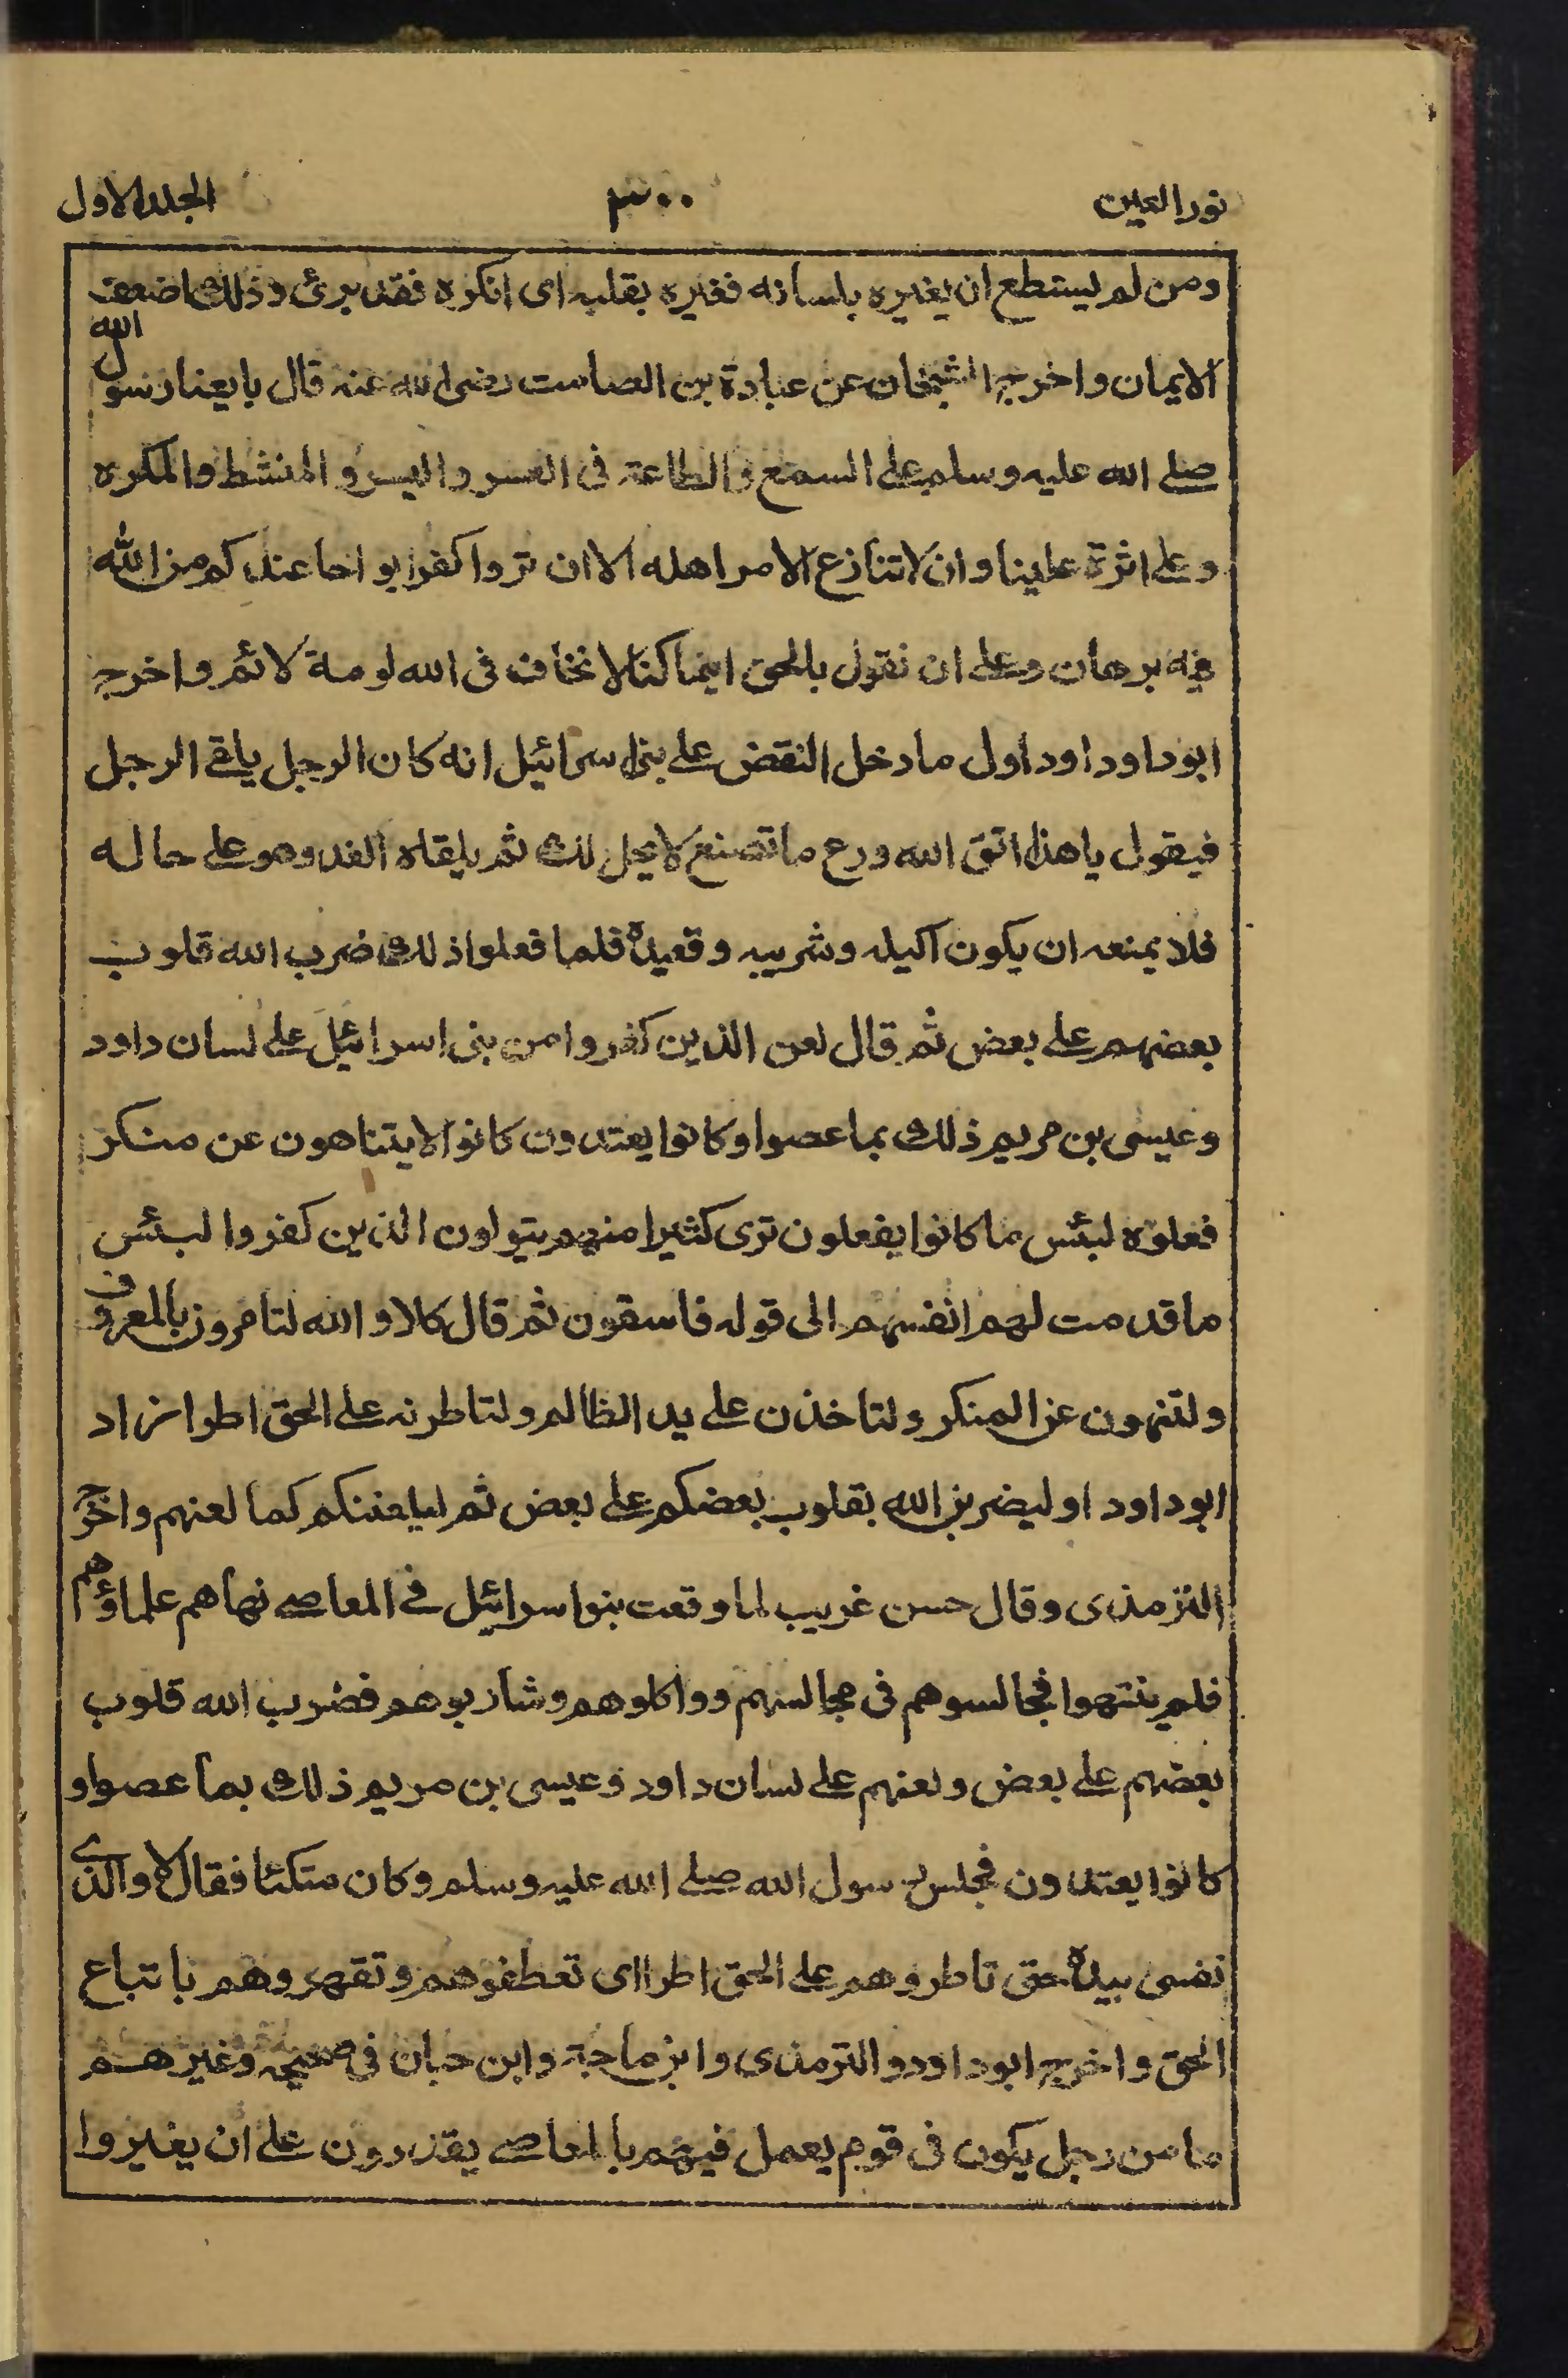 نور العين ٣٠٠ الجلد الاول
ومن لم يستطع ان يغيره بلسانه فغيره بقلبه اى انكره فقد برئ وذلك اضعف
الايمان واخرج الشيخان عن عبادة بن الصامت رضى الله عنه قال بايعنا رسول الله
صلى الله عليه وسلم على السمع والطاعة فى العسر واليسر والمنشط والمكره
وعلى اثرة علينا وان لا تنازع الامر اهله الا ان تروا كفرا بواحا عندكم من الله
فيه برهان وعلى ان نقول بالحق اينما كنا لا نخاف فى الله لومة لائم واخرج
ابوداود اول ما دخل النقض على بنى اسرائيل انه كان الرجل يلقى الرجل
فيقول يا هذا اتق الله ودع ما تصنع لا يحل لك ثم يلقاه الغد وهو على حاله
فلا يمنعه ان يكون اكيله وشريبه وقعيده فلما فعلوا ذلك ضرب الله قلوب
بعضهم على بعض ثم قال لعن الذين كفروا من بنى اسرائيل على لسان داود
وعيسى بن مريم ذلك بما عصوا وكانوا يعتدون كانوا لا يتناهون عن منكر
فعلوه لبئس ما كانوا يفعلون ترى كثيرا منهم يتولون الذين كفروا لبئس
ما قدمت لهم انفسهم الى قوله فاسقون ثم قال كلا والله لتامرون بالمعروف
ولتنهون عن المنكر ولتاخذن على يد الظالم ولتاطرنه على الحق اطرا زاد
ابوداود او ليضربن الله بقلوب بعضكم على بعض ثم ليلعننكم كما لعنهم واخرج
الترمذى وقال حسن غريب لما وقعت بنو اسرائيل فى المعاصى نهاهم علماؤهم
فلم ينتهوا فجالسوهم فى مجالسهم وواكلوهم وشاربوهم فضرب الله قلوب
بعضهم على بعض ولعنهم على لسان داود وعيسى بن مريم ذلك بما عصوا و
كانوا يعتدون فجلس رسول الله صلى الله عليه وسلم وكان متكئا فقال لا والذى
نفسى بيده حتى تاطروهم على الحق اطرا اى تعطفوهم وتقهروهم باتباع
الحق واخرج ابوداود والترمذى وابن ماجة وابن حبان فى صحيحه وغيرهم
ما من رجل يكون فى قوم يعمل فيهم بالمعاصى يقدرون على ان يغيروا